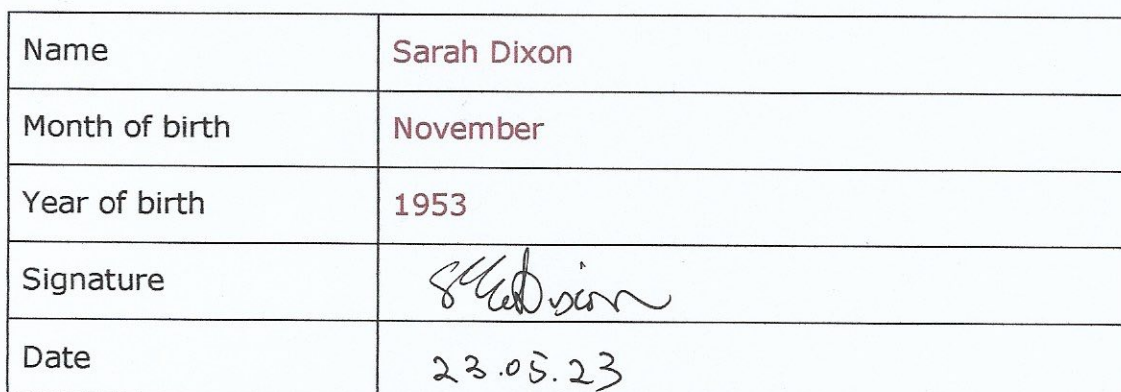 Name Sarah Dixon
Month of birth November
Year of birth 1953
Signature
Date 23.05.23